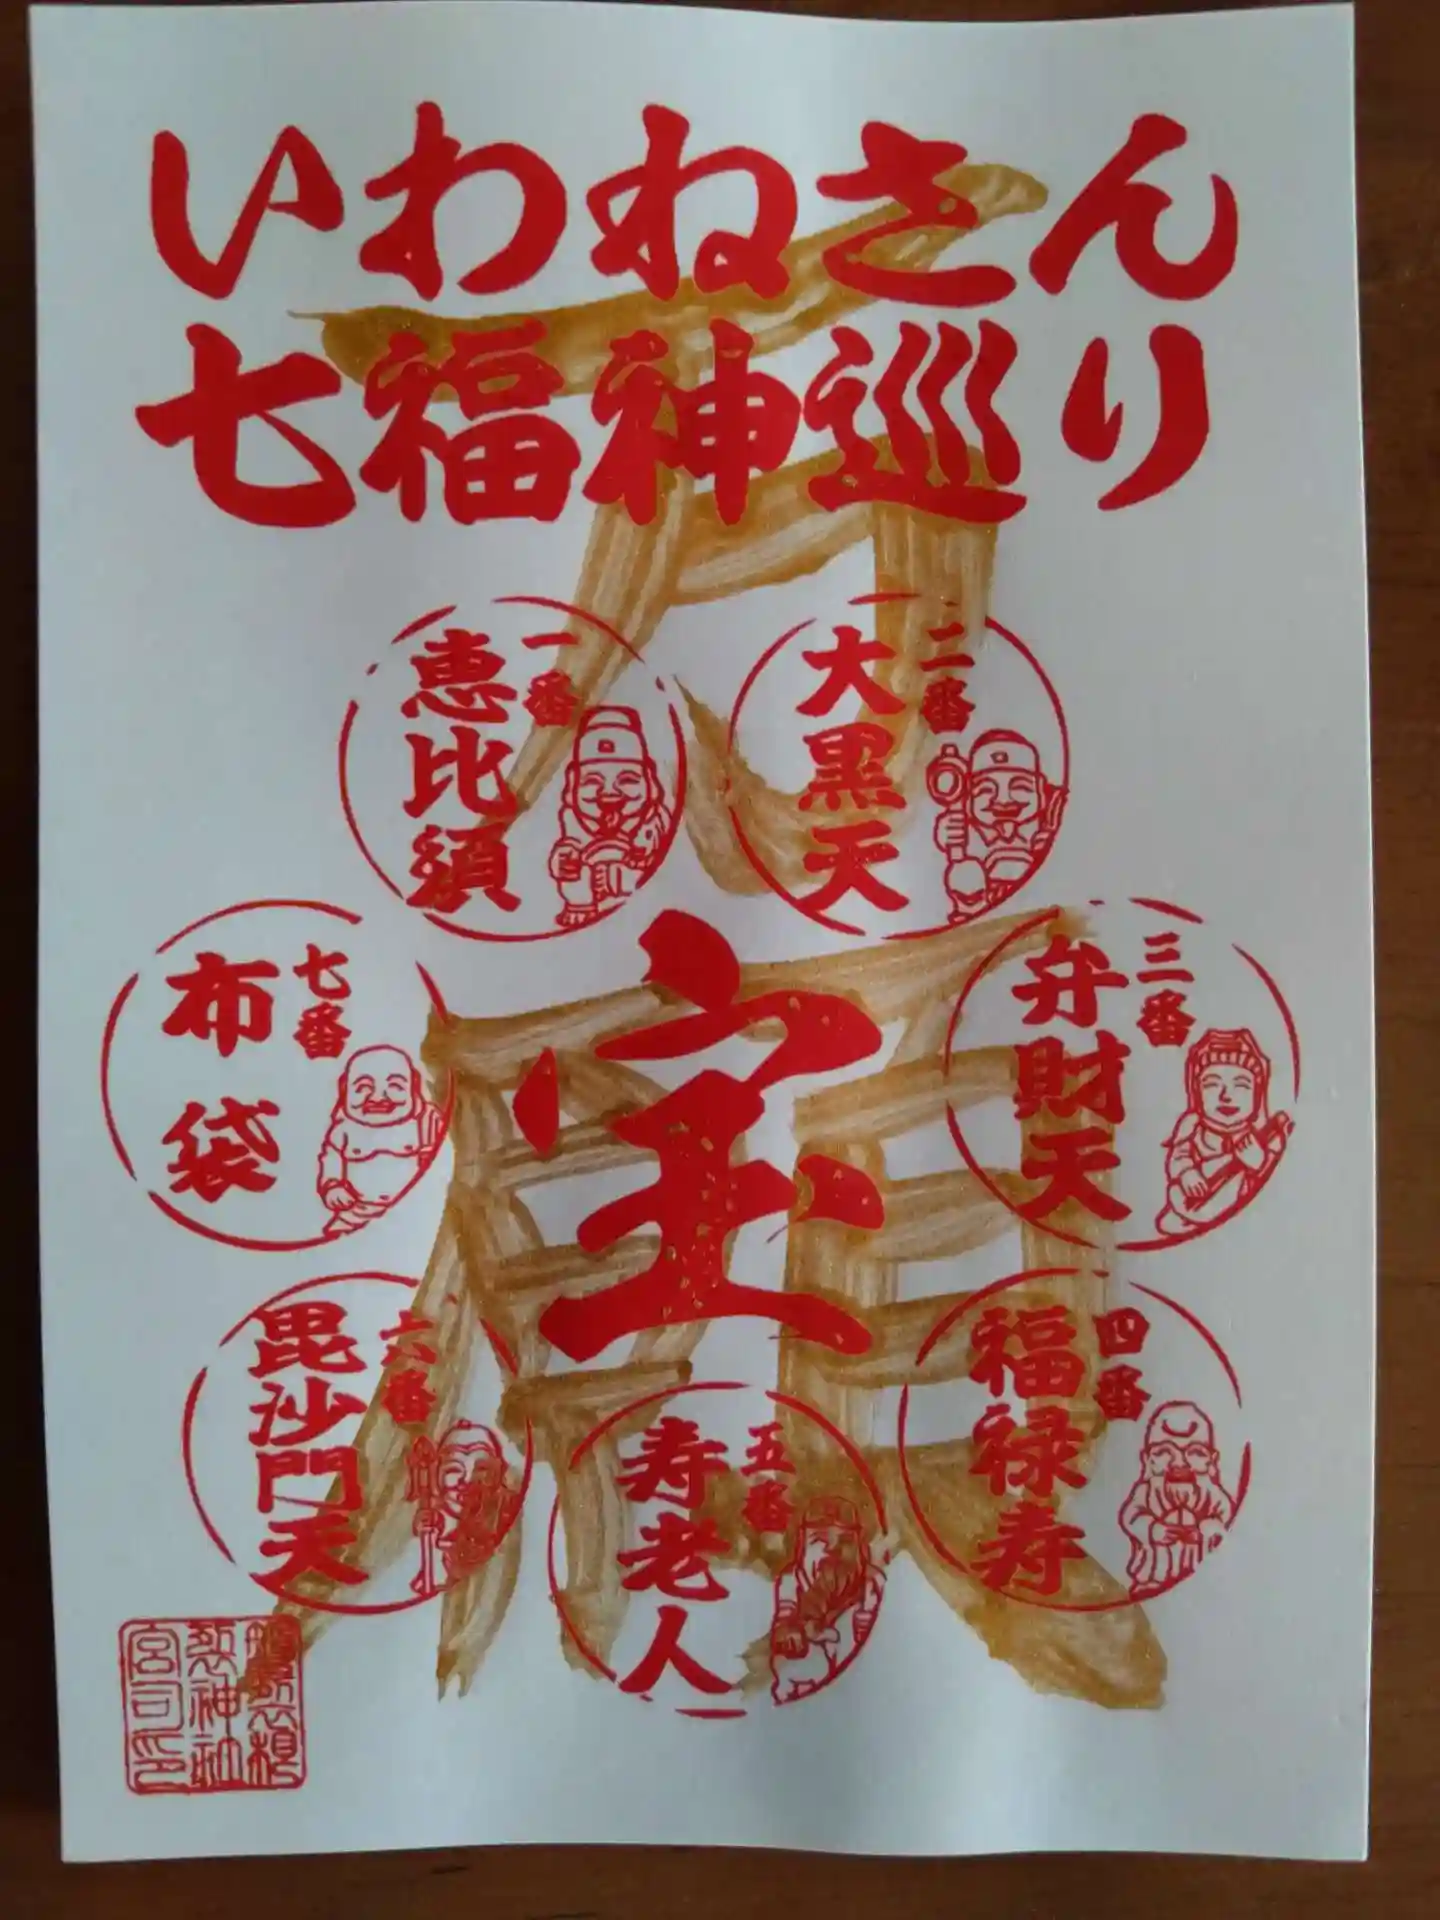 いわねさん
七福神巡り
一番
恵比須
二番
大黒天
三番
弁財天
四番
福禄寿
五番
寿老人
六番
毘沙門天
七番
布袋
宝
神社
宮司印